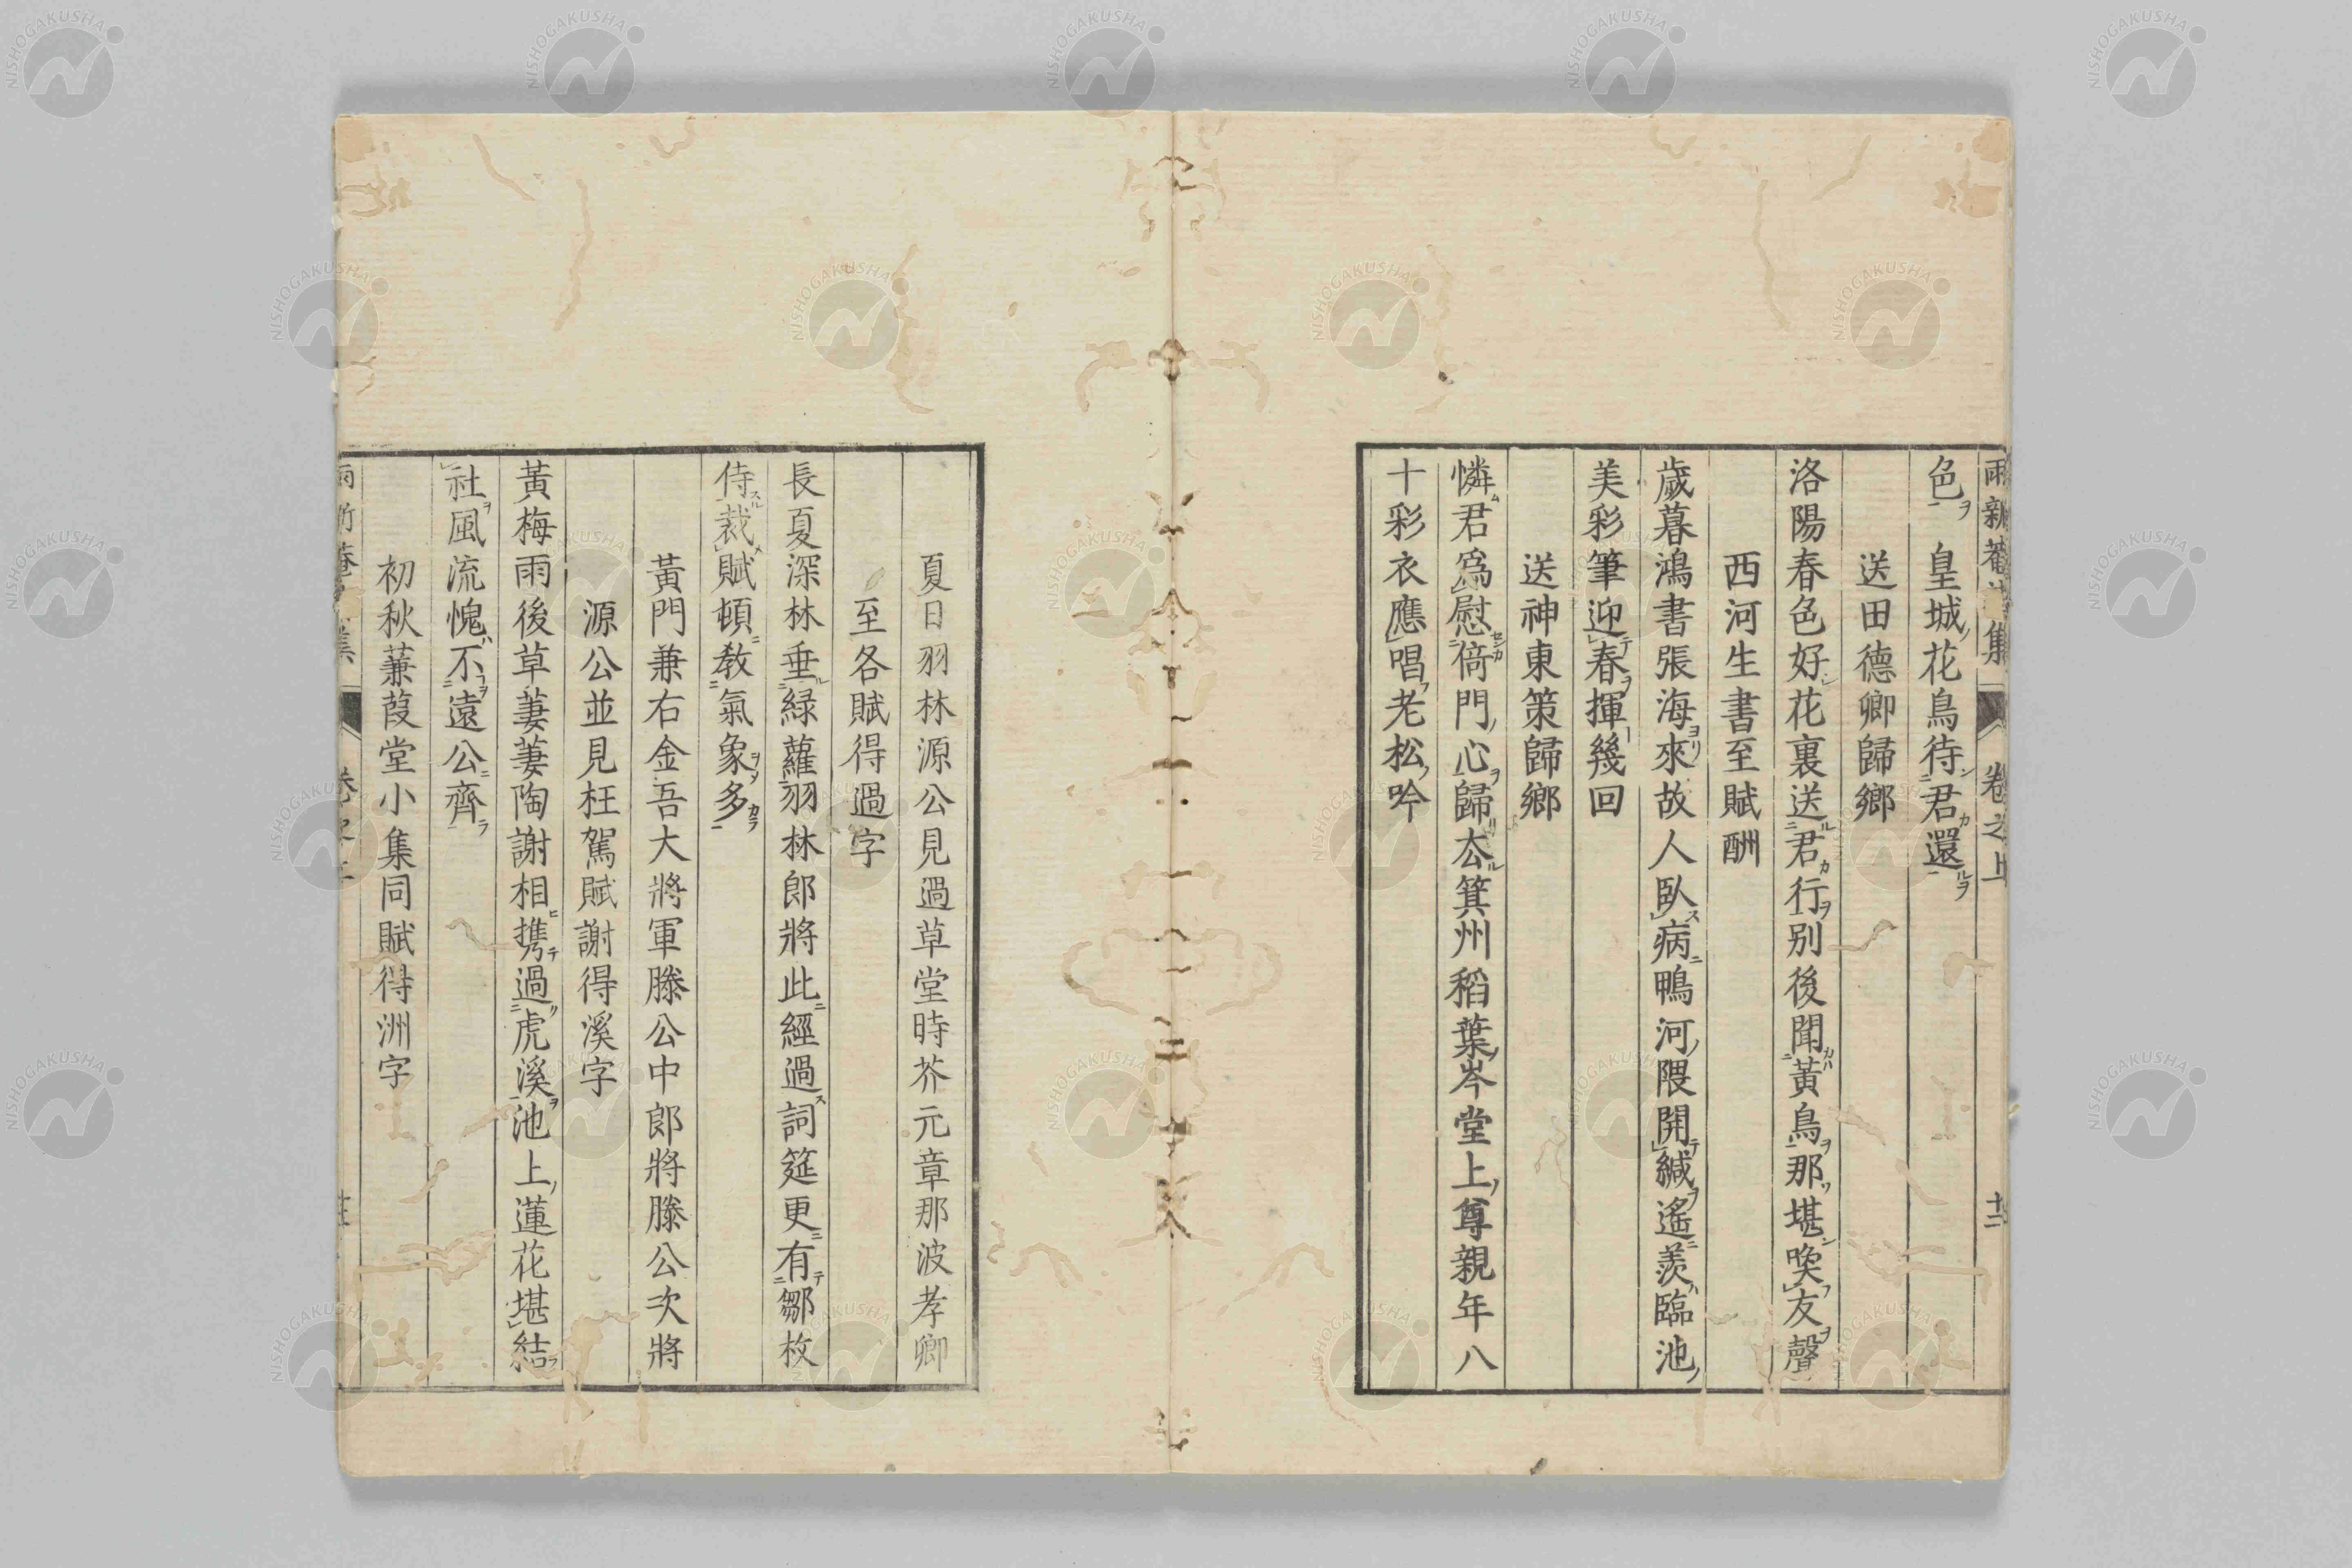 色皇城花鳥待君還
送田德卿歸鄉
洛陽春色好花裏送君行別後聞黃鳥那堪喚友聲
西河生書至賦酬
歲暮鴻書張海來故人臥病鴨河隈開緘遙羨臨池
美彩筆迎春揮幾回
送神東策歸鄉
憐君爲慰倚門心歸去箕州稻葉岑堂上尊親年八
十彩衣應唱老松吟
卷之上
十二
夏日羽林源公見過草堂時芥元章那波孝卿
至各賦得過字
長夏深林垂綠蘿羽林郎將此經過詞筵更有鄒枚
侍裁賦頓教氣象多
黃門兼右金吾大將軍滕公中郎將滕公次將
源公並見枉駕賦謝得溪字
黃梅雨後草萋萋陶謝相携過虎溪池上蓮花堪結
社風流愧不遠公齊
初秋蒹葭堂小集同賦得洲字
NISHOGAKUSHA